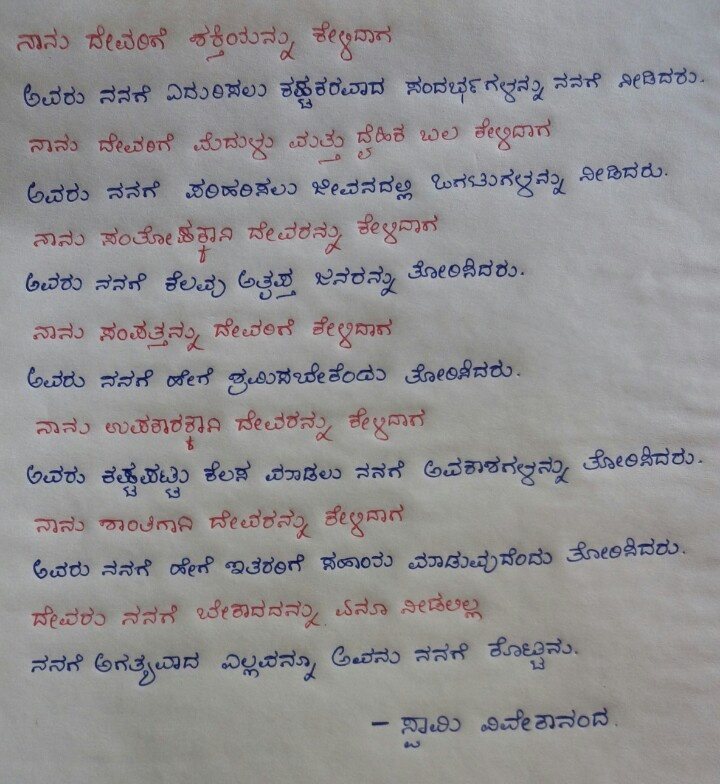 ನಾನು ದೇವರಿಗೆ ಶಕ್ತಿಯನ್ನು ಕೇಳಿದಾಗ
ಅವರು ನನಗೆ ಎದುರಿಸಲು ಕಷ್ಟಕರವಾದ ಸಂದರ್ಭಗಳನ್ನು ನನಗೆ ನೀಡಿದರು.
ನಾನು ದೇವರಿಗೆ ಮೆದುಳು ಮತ್ತು ದೈಹಿಕ ಬಲ ಕೇಳಿದಾಗ
ಅವರು ನನಗೆ ಪರಿಹರಿಸಲು ಜೀವನದಲ್ಲಿ ಒಗಟುಗಳನ್ನು ನೀಡಿದರು.
ನಾನು ಸಂತೋಷಕ್ಕಾಗಿ ದೇವರನ್ನು ಕೇಳಿದಾಗ
ಅವರು ನನಗೆ ಕೆಲವು ಅತೃಪ್ತ ಜನರನ್ನು ತೋರಿಸಿದರು.
ನಾನು ಸಂಪತ್ತನ್ನು ದೇವರಿಗೆ ಕೇಳಿದಾಗ
ಅವರು ನನಗೆ ಹೇಗೆ ಶ್ರಮಿಸಬೇಕೆಂದು ತೋರಿಸಿದರು.
ನಾನು ಉಪಕಾರಕ್ಕಾಗಿ ದೇವರನ್ನು ಕೇಳಿದಾಗ
ಅವರು ಕಷ್ಟಪಟ್ಟು ಕೆಲಸ ಮಾಡಲು ನನಗೆ ಅವಕಾಶಗಳನ್ನು ತೋರಿಸಿದರು.
ನಾನು ಶಾಂತಿಗಾಗಿ ದೇವರನ್ನು ಕೇಳಿದಾಗ
ಅವರು ನನಗೆ ಹೇಗೆ ಇತರರಿಗೆ ಸಹಾಯ ಮಾಡುವುದೆಂದು ತೋರಿಸಿದರು.
ದೇವರು ನನಗೆ ಬೇಕಾದದನ್ನು ಏನೂ ನೀಡಲಿಲ್ಲ
ನನಗೆ ಅಗತ್ಯವಾದ ಎಲ್ಲವನ್ನೂ ಅವನು ನನಗೆ ಕೊಟ್ಟನು.
- ಸ್ವಾಮಿ ವಿವೇಕಾನಂದ.